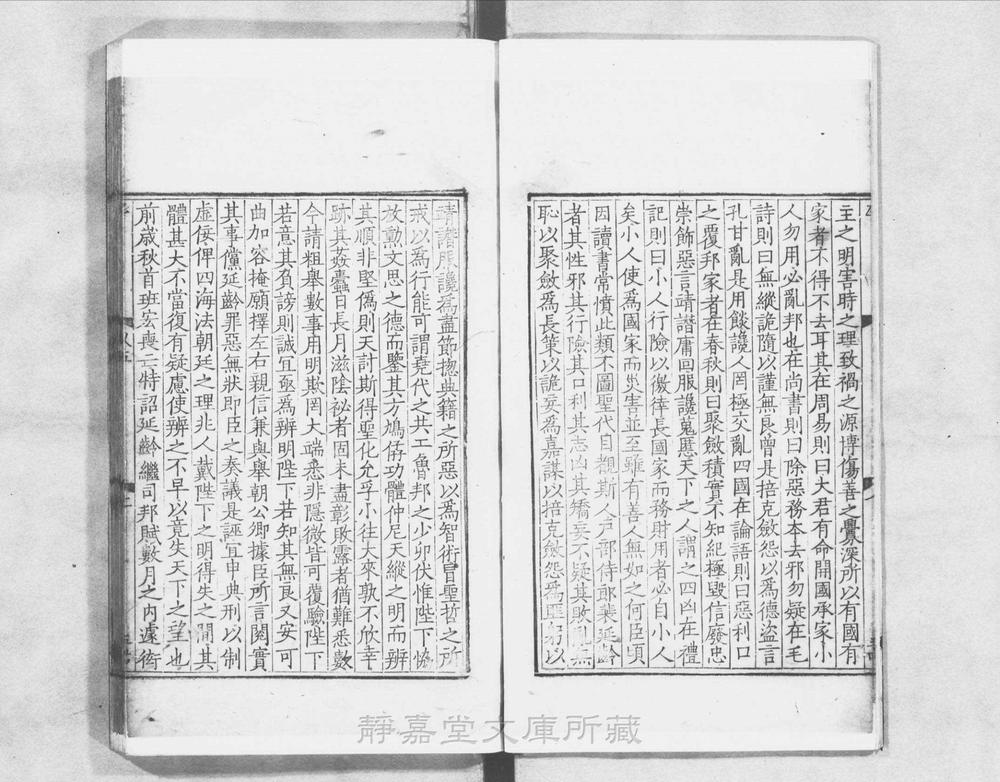 主之明害時之理致禍之源博傷善之釁深所以有國有
家者不得不去耳其在周易則曰大君有命開國承家小
人勿用必亂邦也在尚書則曰除惡務本去邪勿疑在毛
詩則曰無縱詭隨以謹無良曾是掊克斂怨以為德盜言
孔甘亂是用餤讒人罔極交亂四國在論語則曰惡利口
之覆邦家者在春秋則曰聚斂積實不知紀極毀信廢忠
崇飾惡言靖譖庸回服讒蒐慝天下之人謂之四凶在禮
記則曰小人行險以徼倖長國家而務財用者必自小人
矣小人使為國家而災害並至雖有善人無如之何臣頃
因讀書常憤此類不圖聖代目覩斯人戶部侍郎裴延齡
者其性邪其行險其口利其志凶其矯妄不疑其敗亂無
恥以聚斂為長策以詭妄為嘉謀以掊克斂怨為匪躬以
靖譖服讒為盡節揔典藉之所惡以為智術冒聖哲之所
戒以為行能可謂堯代之共工魯邦之少卯伏惟陛下恊
放勳文思之德而鑒其方鳩僝功體仲尼天縱之明而辨
其順非堅僞則天討斯得聖化允孚小往大來孰不欣幸
跡其姦蠹日長月滋陰祕者固未盡彰敗露者猶難悉數
今請粗舉數事用明欺罔大端悉非隱微皆可覆驗陛下
若意其負謗則誠宜亟為辨明陛下若知其無良又安可
曲加容掩願擇左右親信兼與舉朝公卿據臣所言閱實
其事儻延齡罪惡無狀即臣之奏議是誣宜申典刑以制
虛佞俾四海法朝廷之理非人戴陛下之明得失之間其
體甚大不當復有疑慮使辨之不早以竟失天下之望也
前歲秋首班宏喪亡特詔延齡繼司邦賦數月之內遽衒